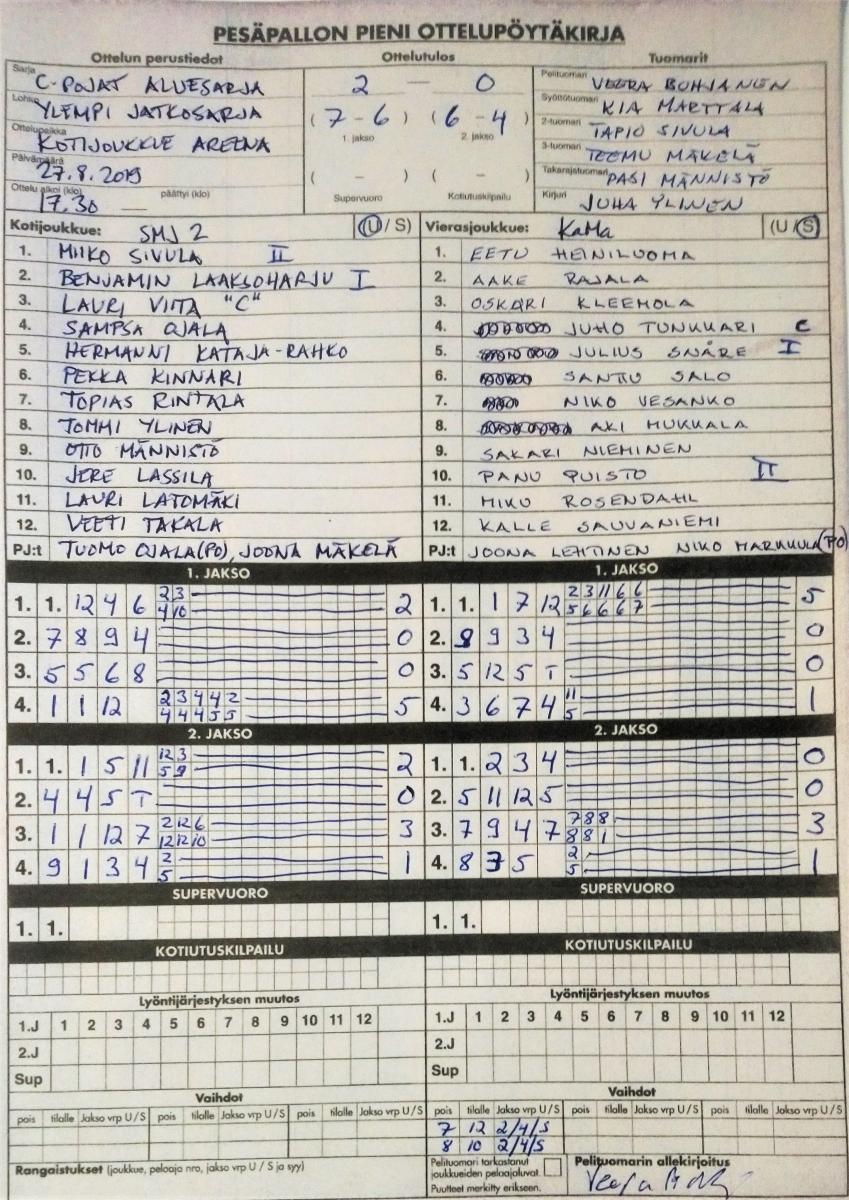 PESÄPALLON PIENI OTTELUPÖYTÄKIRJA
Ottelun perustiedot
Sarja C-POJAT ALUESARJA
Lohko YLEMPI JATKOSARJA
Ottelupaikka KOTIJOUKKUE AREENA
Päivämäärä 27.8.2019
Ottelu alkoi (klo) 17.30 — päättyi (klo)
Ottelutulos
2 — 0
( 7 - 6 ) ( 6 - 4 )
1. jakso 2. jakso
( – ) ( – )
Supervuoro Kotiutuskilpailu
Tuomarit
Pelituomari VEERA BOHJANEN
Syöttötuomari KIA MARTTALA
2-tuomari TAPIO SIVULA
3-tuomari TEEMU MÄKELÄ
Takarajatuomari PASI MÄNNISTÖ
Kirjuri JUHA YLINEN
Kotijoukkue: SMJ 2 (U / S)
1. MIIKO SIVULA II
2. BENJAMIN LAAKSOHARJU I
3. LAURI VIITA "C"
4. SAMPSA OJALA
5. HERMANNI KATAJA-RAHKO
6. PEKKA KINNARI
7. TOPIAS RINTALA
8. TOMMI YLINEN
9. OTTO MÄNNISTÖ
10. JERE LASSILA
11. LAURI LATOMÄKI
12. VEETI TAKALA
PJ:t TUOMO OJALA(PO), JOONA MÄKELÄ
Vierasjoukkue: KaMa (U / S)
1. EETU HEINILUOMA
2. AAKE RAJALA
3. OSKARI KLEEMOLA
4. JUHO TUNKKARI C
5. JULIUS SNÅRE I
6. SANTTU SALO
7. NIKO VESANKO
8. AKI MUKKALA
9. SAKARI NIEMINEN
10. PANU PUISTO II
11. MIKO ROSENDAHL
12. KALLE SAUVANIEMI
PJ:t JOONA LEHTINEN NIKO MARKKULA(PO)
1. JAKSO
1. 1. 12 4 6 2 3 2
4 10
2. 7 8 9 4 0
3. 5 5 6 8 0
4. 1 1 12 2 3 4 4 2 5
4 4 4 5 5
2. JAKSO
1. 1. 1 5 11 12 3 2
5 9
2. 4 4 5 T 0
3. 1 1 12 7 2 12 6 3
12 12 10
4. 9 1 3 4 2 1
5
SUPERVUORO
1. 1.
KOTIUTUSKILPAILU
1. JAKSO
1. 1. 1 7 12 2 3 11 6 6 5
5 6 6 6 7
2. 8 9 3 4 0
3. 5 12 5 T 0
4. 3 6 7 4 11 1
5
2. JAKSO
1. 1. 2 3 4 0
2. 5 11 12 5 0
3. 7 9 4 7 7 8 8 3
8 8 1
4. 8 3 5 2 1
5
SUPERVUORO
1. 1.
KOTIUTUSKILPAILU
Lyöntijärjestyksen muutos
1.J 1 2 3 4 5 6 7 8 9 10 11 12
2.J
Sup
Lyöntijärjestyksen muutos
1.J 1 2 3 4 5 6 7 8 9 10 11 12
2.J
Sup
Vaihdot
pois tilalle Jakso vrp U/S pois tilalle Jakso vrp U/S pois tilalle Jakso vrp U/S
Vaihdot
pois tilalle Jakso vrp U/S pois tilalle Jakso vrp U/S pois tilalle Jakso vrp U/S
7 12 2/4/S
8 10 2/4/S
Rangaistukset (joukkue, pelaaja nro, jakso vrp U / S ja syy)
Pelituomari tarkastanut
joukkueiden pelaajaluvat.
Puutteet merkitty erikseen.
Pelituomarin allekirjoitus